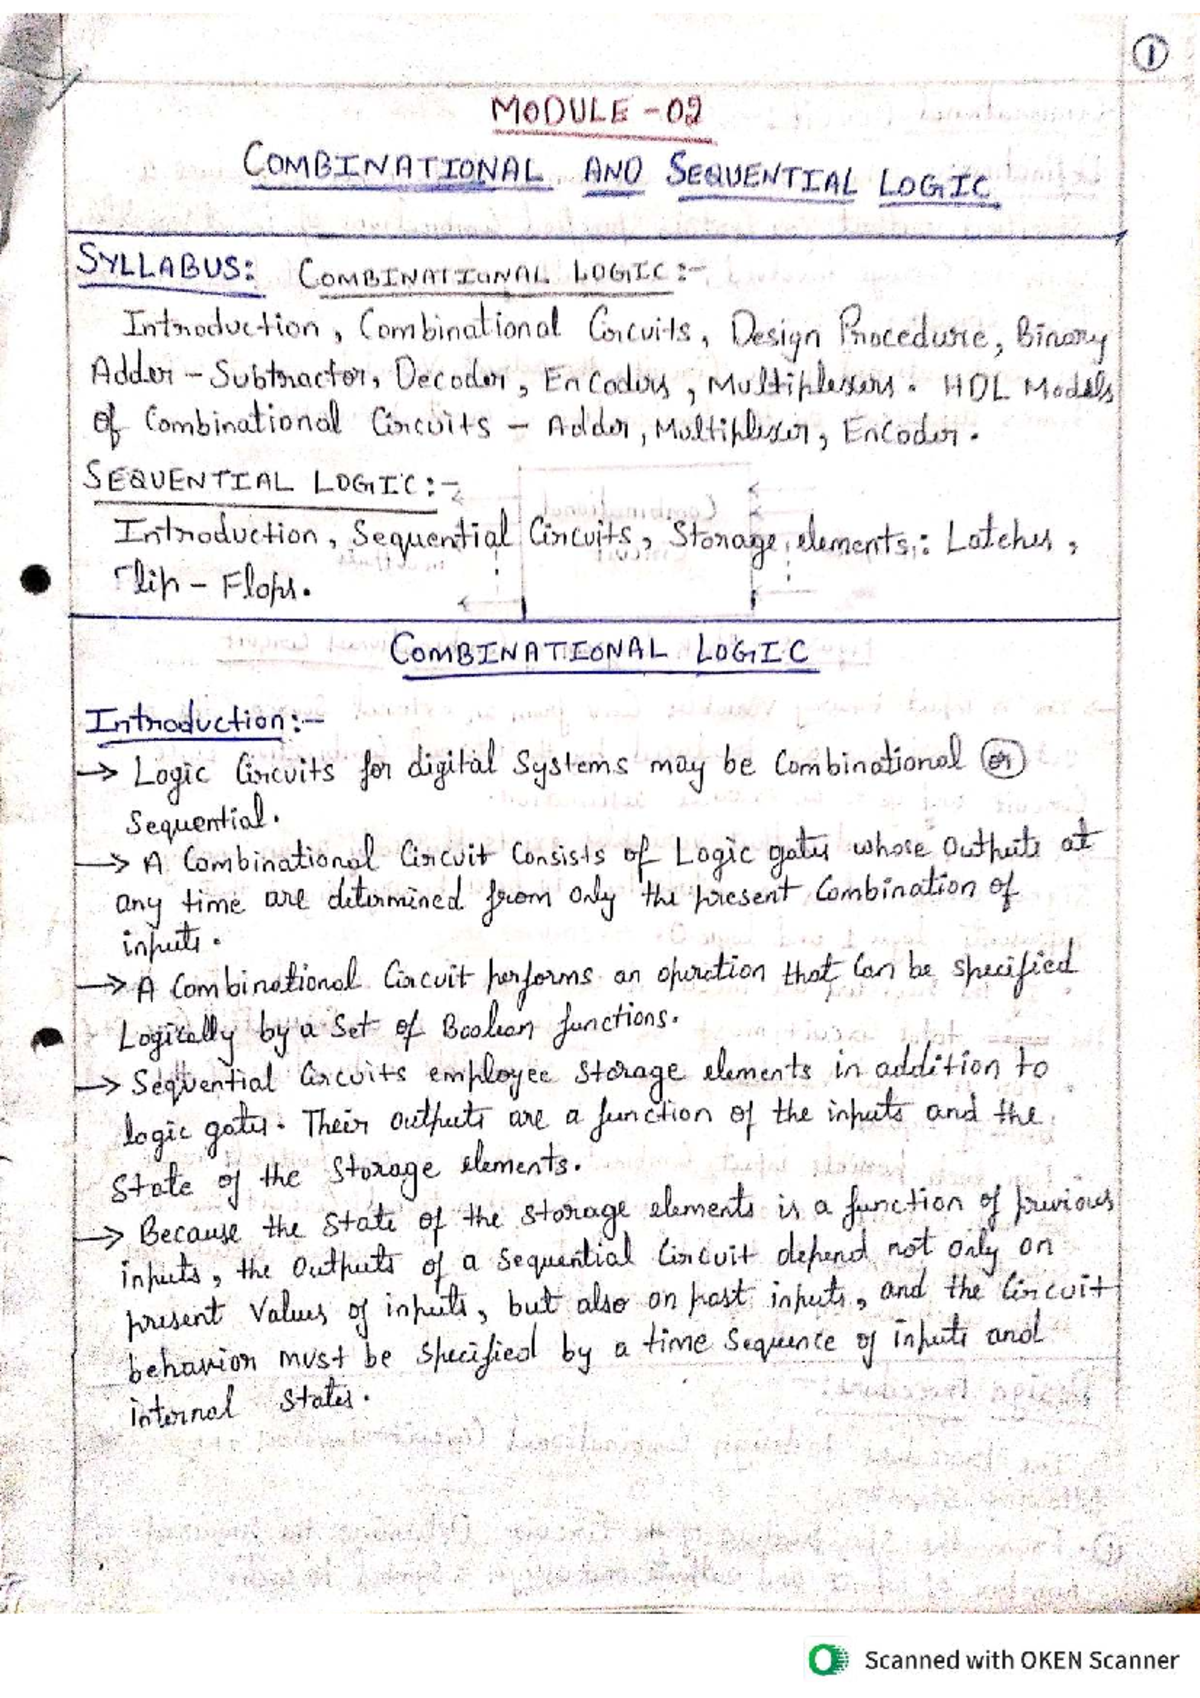 1
MODULE -02
COMBINATIONAL AND SEQUENTIAL LOGIC
SYLLABUS: COMBINATIONAL LOGIC:-
Introduction, Combinational Circuits, Design Procedure, Binary
Adder - Subtractor, Decoder, Encoders, Multiplexers. HDL Models
of Combinational Circuits - Adder, Multiplexer, Encoder.
SEQUENTIAL LOGIC:-
Introduction, Sequential Circuits, Storage elements: Latches,
Flip - Flops.
COMBINATIONAL LOGIC
Introduction:-
→ Logic Circuits for digital Systems may be Combinational or
Sequential.
→ A Combinational Circuit Consists of Logic gates whose Outputs at
any time are determined from only the present Combination of
inputs.
→ A Combinational Circuit performs an operation that Can be specified
Logically by a Set of Boolean functions.
→ Sequential Circuits employee storage elements in addition to
logic gates. Their outputs are a function of the inputs and the
State of the storage elements.
→ Because the state of the storage elements is a function of previous
inputs, the Outputs of a Sequential Circuit depend not only on
present Values of inputs, but also on past inputs, and the Circuit
behavior must be specified by a time Sequence of inputs and
internal States.
Scanned with OKEN Scanner